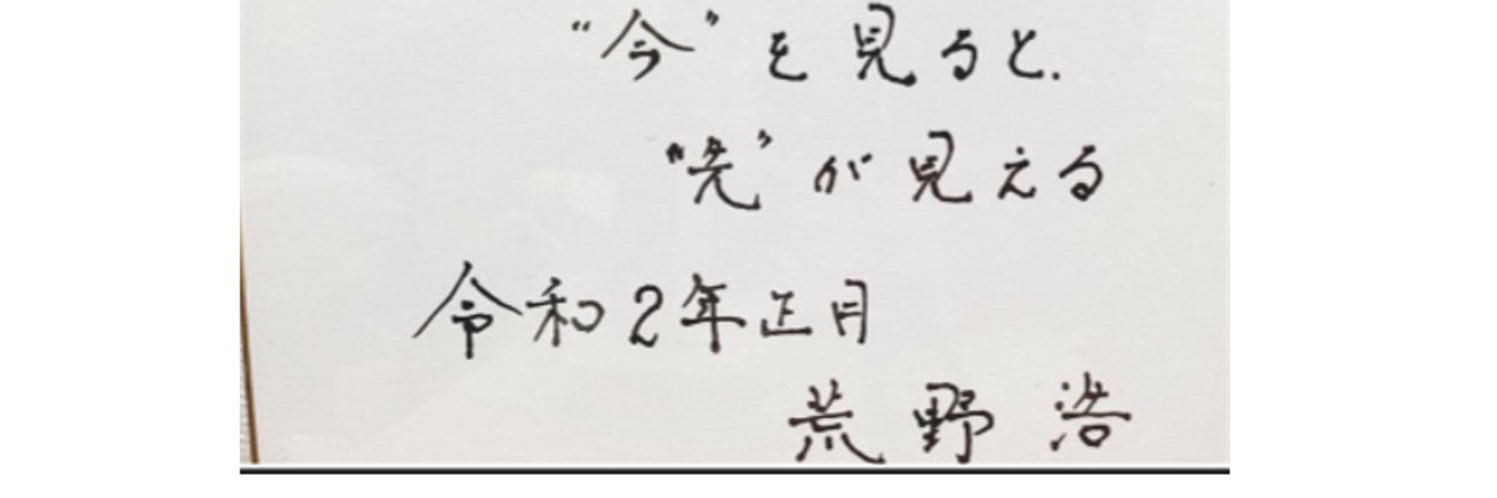 “今”を見ると、
“先”が見える
令和2年正月
荒野浩